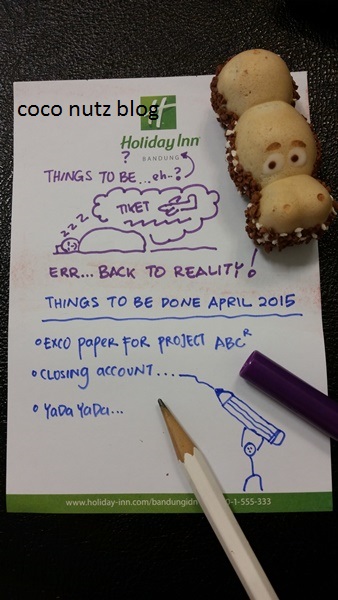 coco nutz blog
H
Holiday Inn®
BANDUNG
?
THINGS TO BE...eh..?
TIKET
z z z z
ERR... BACK TO REALITY!
THINGS TO BE DONE APRIL 2015
EXCO PAPER FOR PROJECT ABC R
CLOSING ACCOUNT....
YaDa YaDa...
www.holiday-inn.com/bandungidn
0-1-555-333